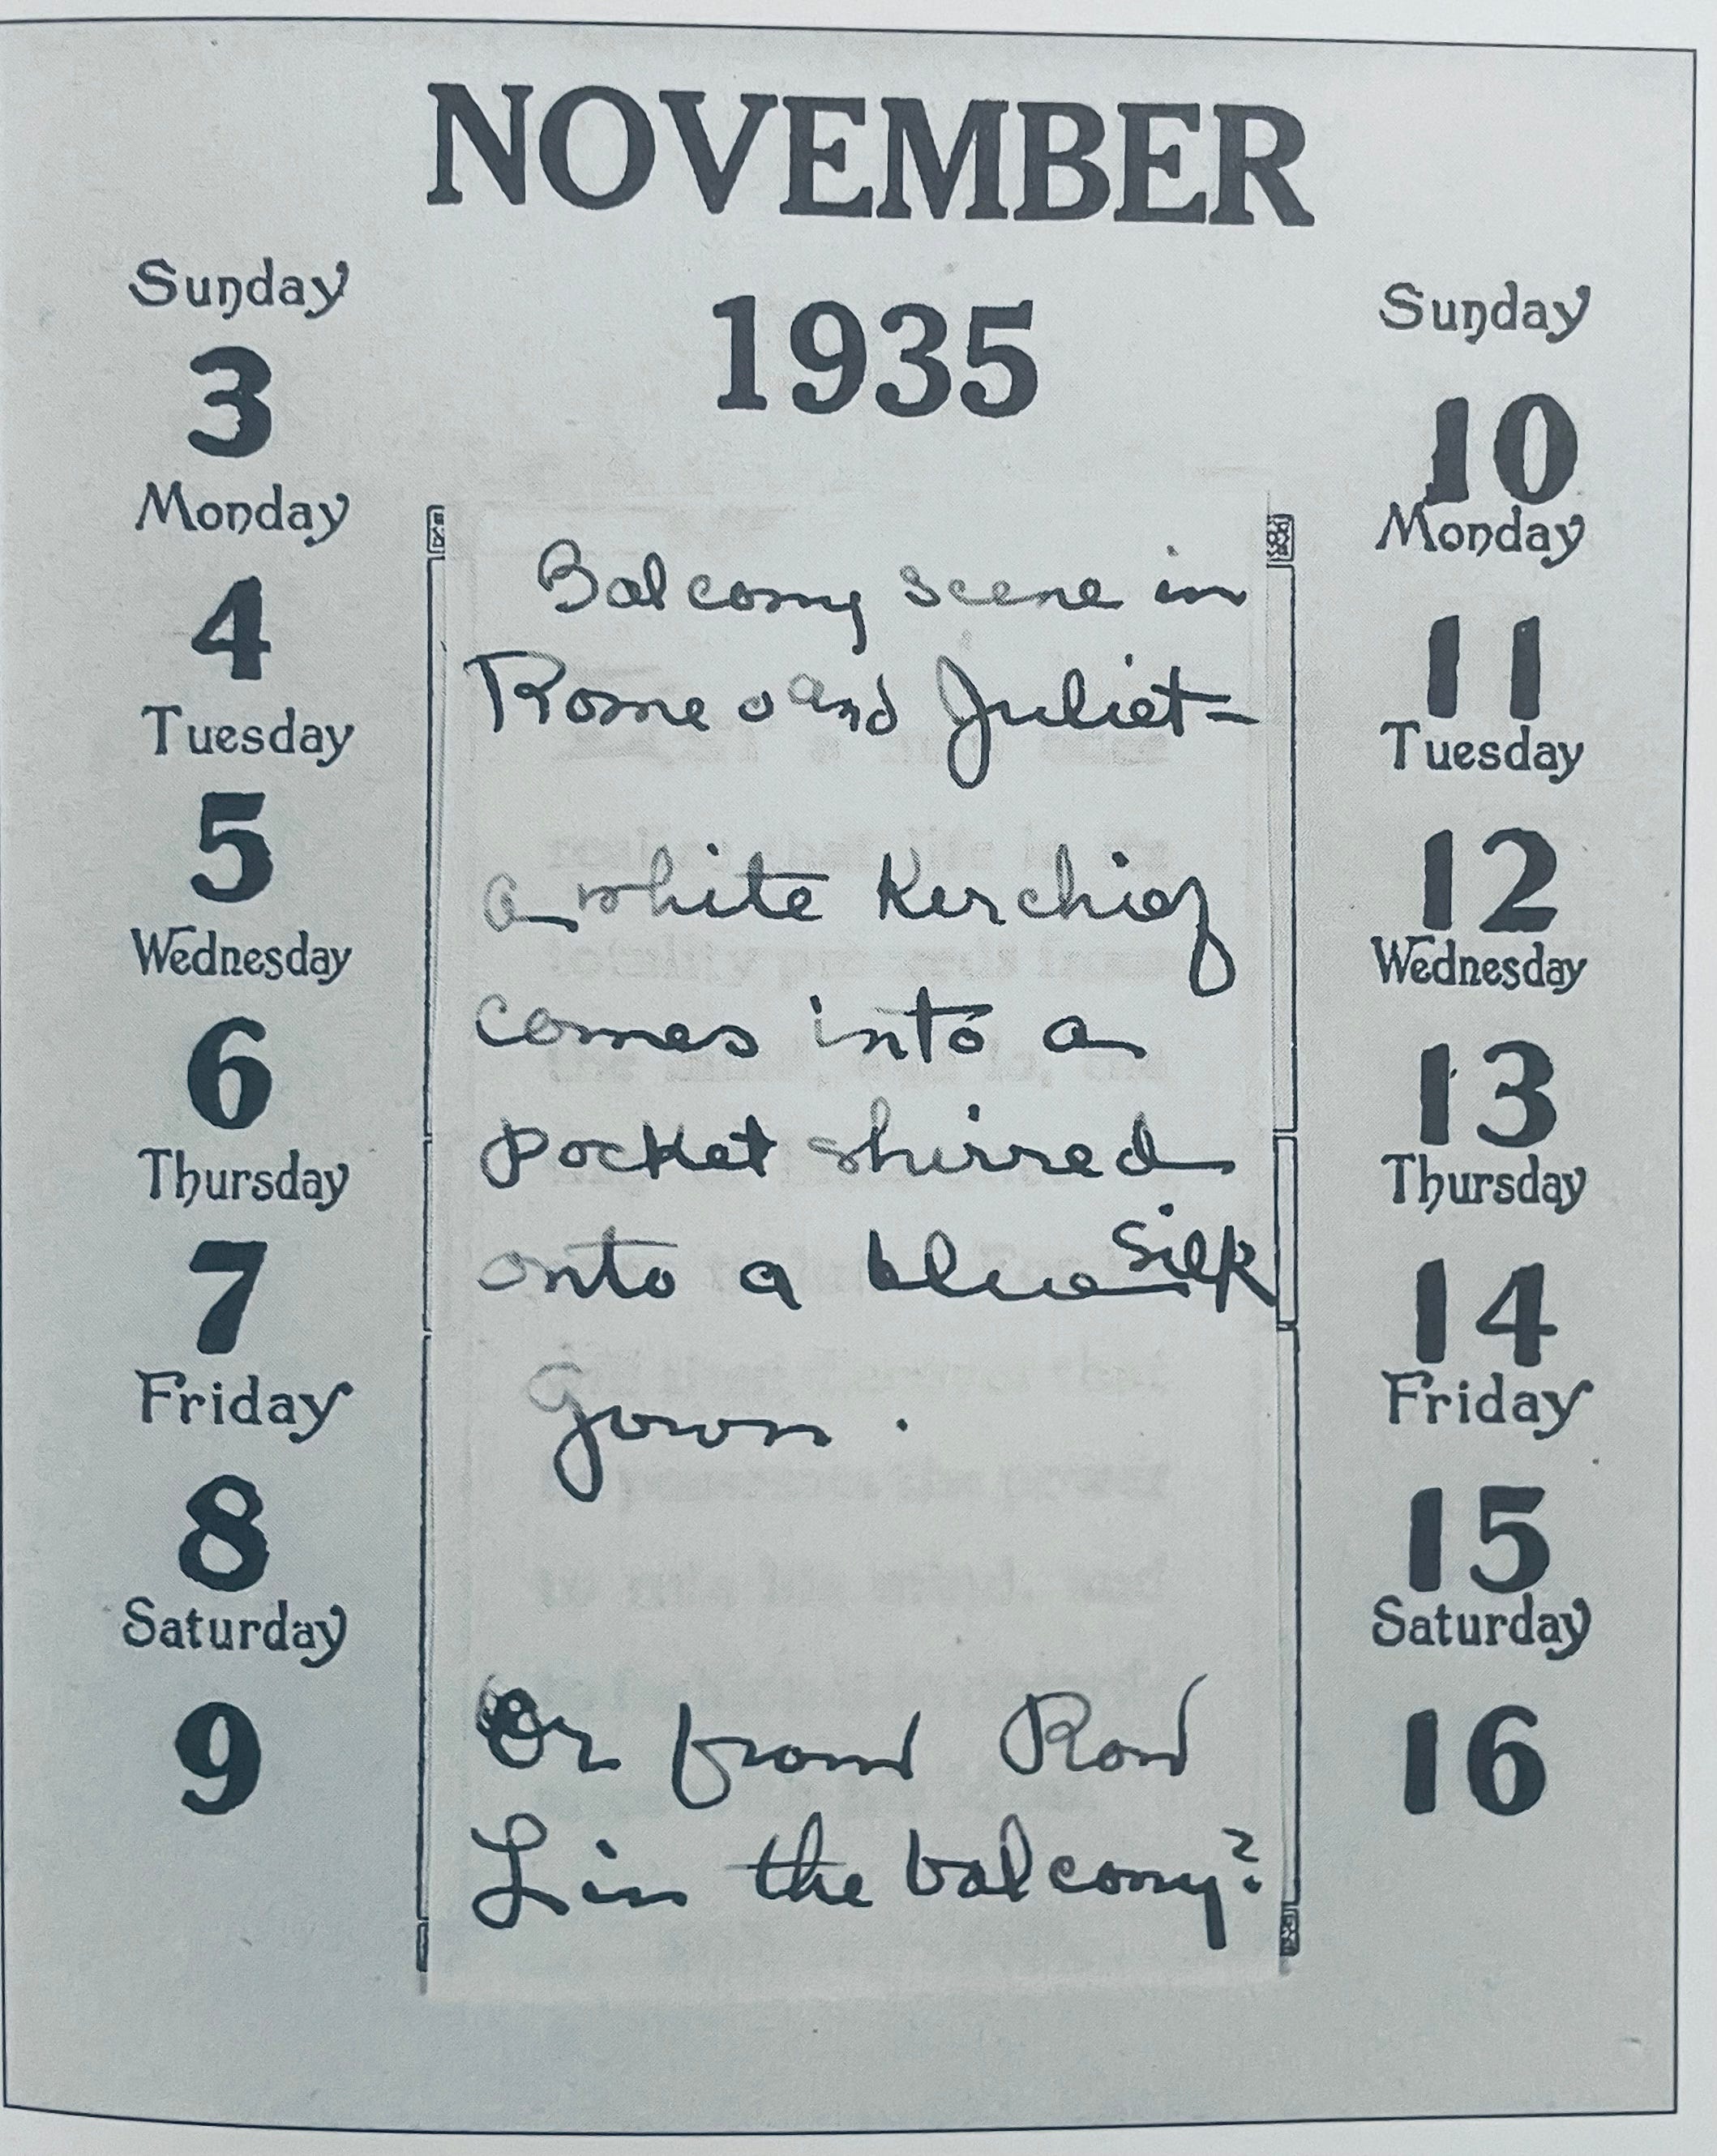 NOVEMBER
1935
Sunday
3
Monday
4
Tuesday
5
Wednesday
6
Thursday
7
Friday
8
Saturday
9
Balcony scene in
Romeo and Juliet =
a white kerchief
comes into a
pocket shirred
onto a blue silk
gown .
Or from Row
L in the balcony?
Sunday
10
Monday
11
Tuesday
12
Wednesday
13
Thursday
14
Friday
15
Saturday
16